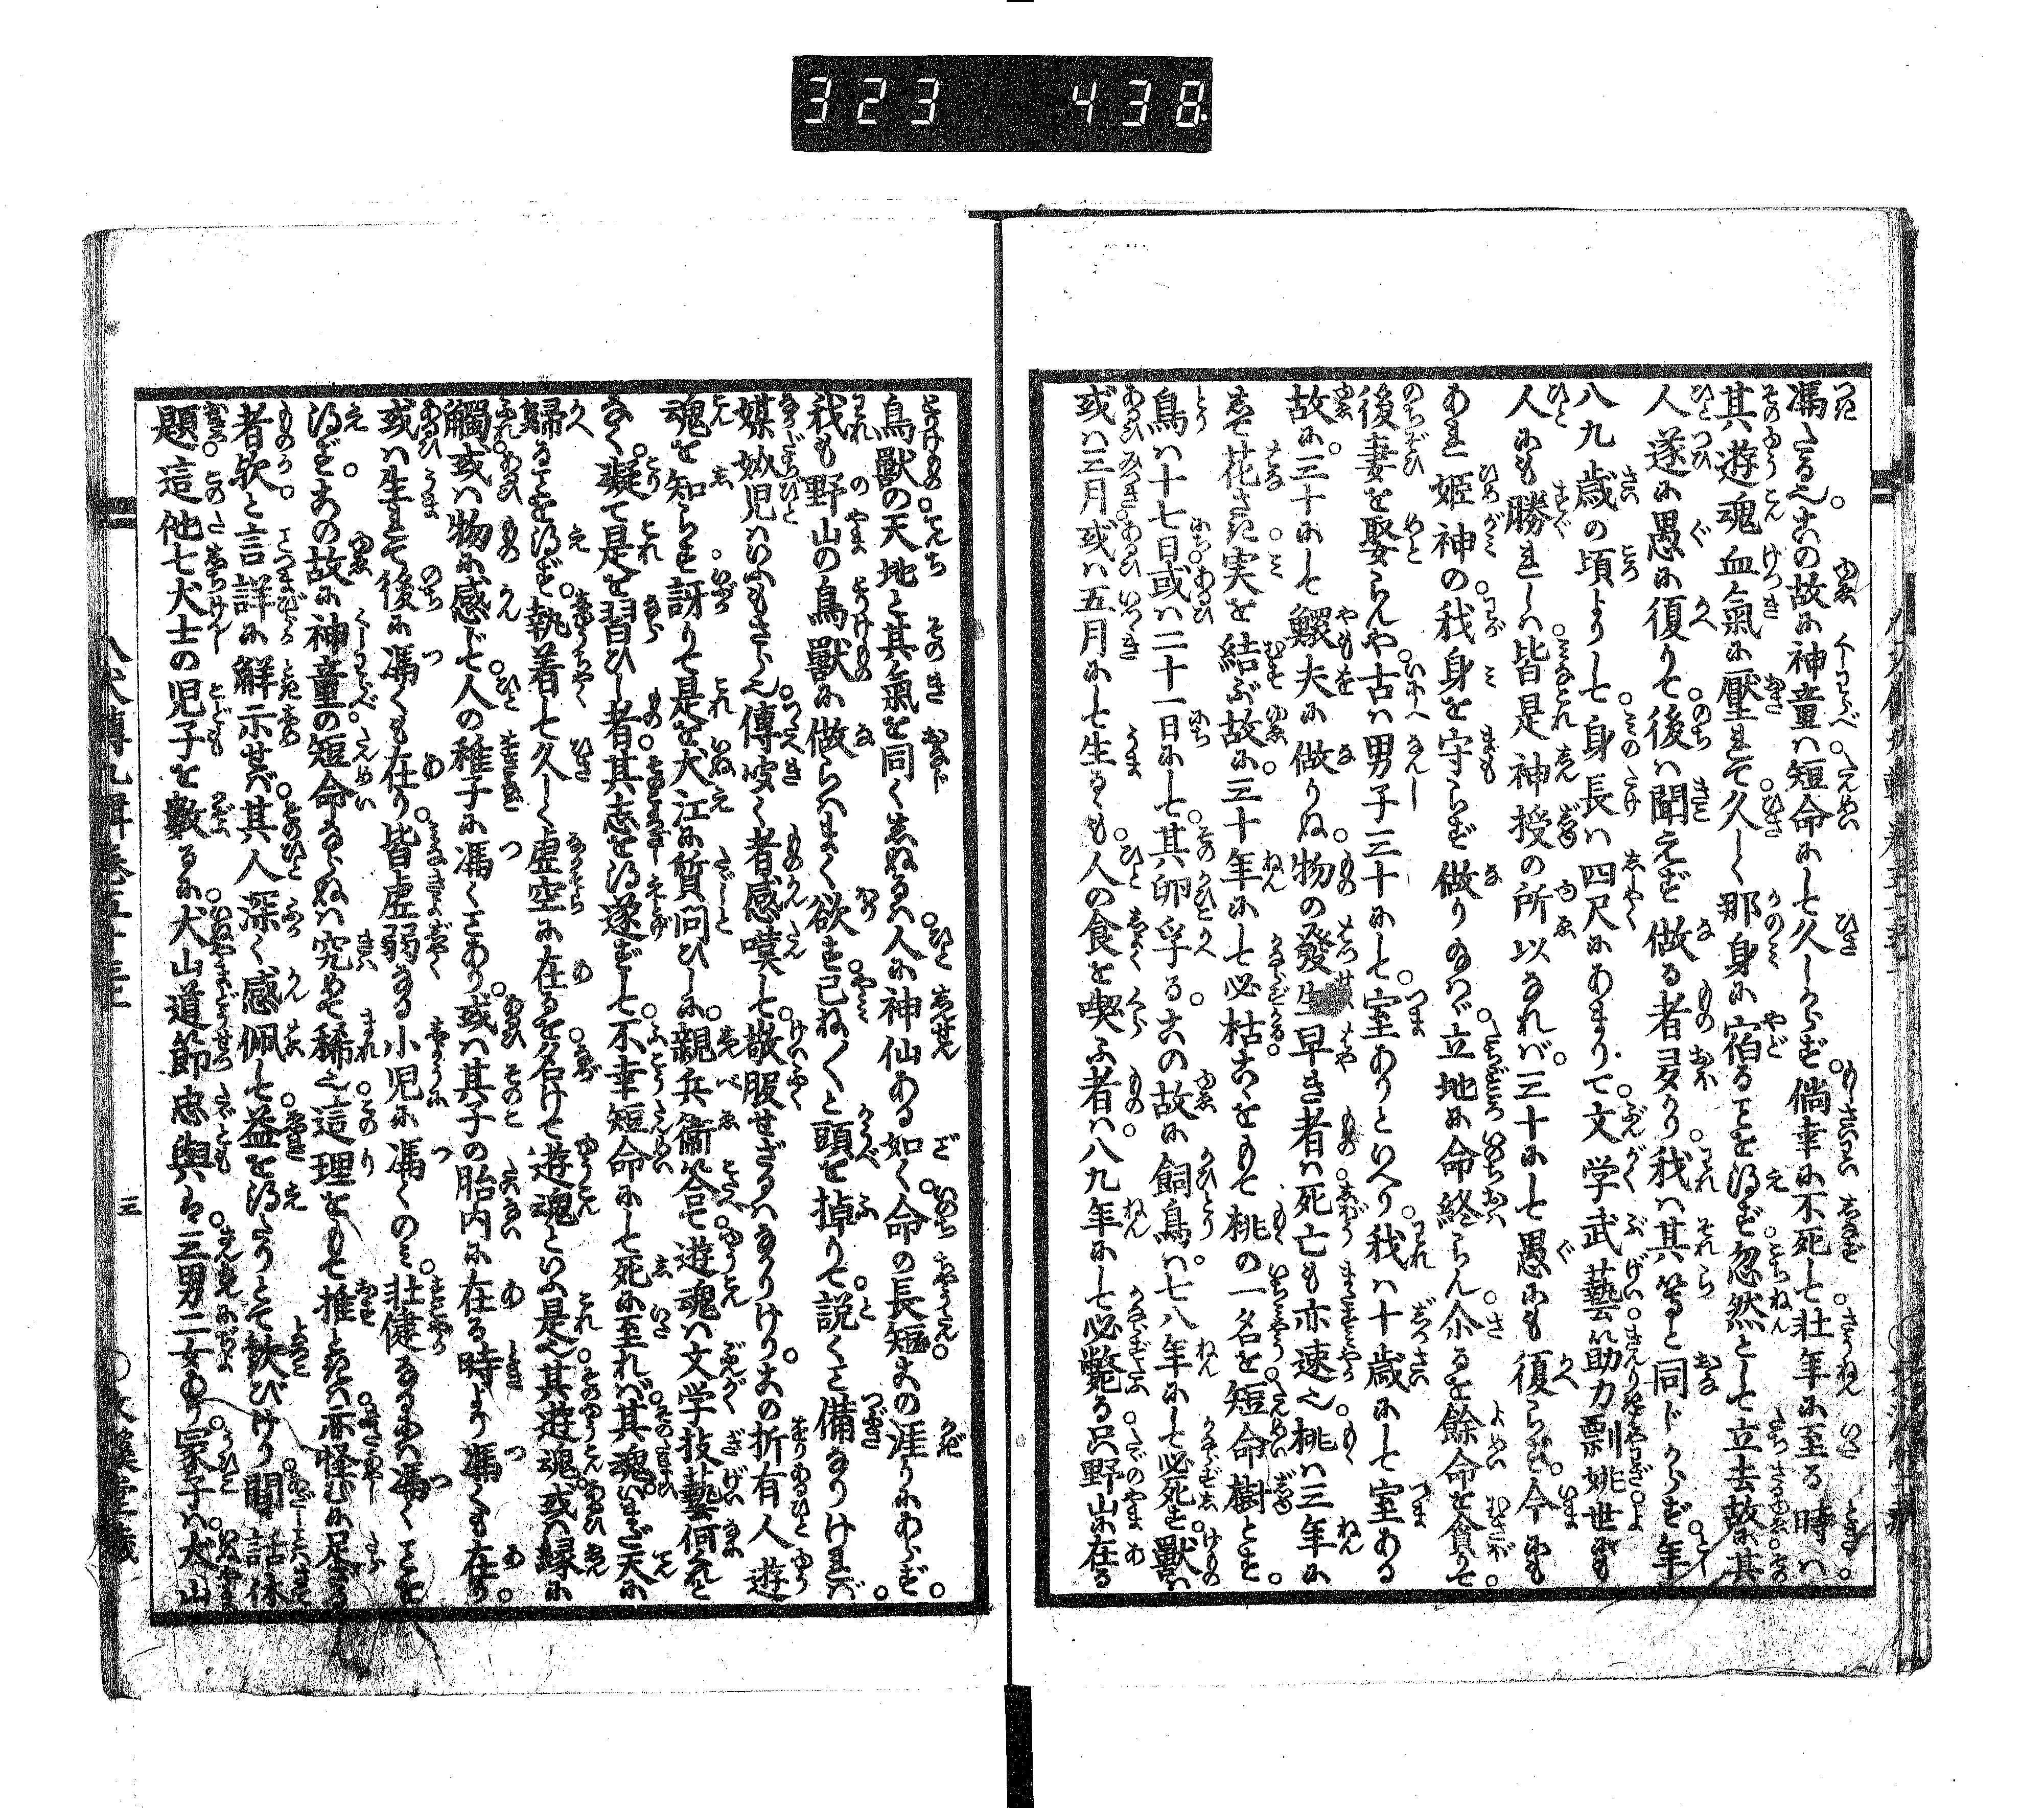 323 438
馮たる也。この故に神童は短命にして久しからず。倘幸に不死して壮年に至る時は。
其遊魂血氣に壓れて久しく那身に宿ることを得ず。忽然として立去故に其
人遂に愚に復りて。後は聞えず做る者多かり。我は其等と同じからず。年
八九歳の頃よりして。身長は四尺にあまりて。文学武藝筋力剽姚。世にも
人にも勝れしは。皆是神授の所以なれば。三十にして愚にも復らず。今にも
あれ姫神の。我身を守らず做りぬはゞ。立地に命終らん。尓るを餘命を貪りて。
後妻を娶らんや。古は男子三十にして。室ありといへり。我は十歳にして室ある
故に。三十にして鰥夫に做りぬ。物の發生早き者は。死亡も亦速也。桃は三年に
して花さき。実を結ぶ故に。三十年にして必枯る。こゝをもて桃の一名を。短命樹とす。
鳥は十七日。或は二十一日にして。其卵孚る。この故に飼鳥は。七八年にして必死す。獸は
或は三月。或は五月にして生るゝも。人の食を喫ふ者は。八九年にして必斃る。只野山に在る
鳥獸の。天地と其氣を同くしぬるは。人に神仙ある如く。命の長短この涯りにあらず。
我も野山の鳥獸に做らまく欲す。已ね〱と頭を掉りて。説くこと備なりければ。
媒妁児はいふもさら也。傳聞く者感嘆して。敬服せざるはなかりけり。この折有人。遊
魂を知らず。訝りて是を犬江に質問ひしに。親兵衞答て。遊魂は文学技藝何まれと
なく。凝て是を習ひし者。其志を得遂ずして。不幸短命にして死に至れば。其魂いまだ天に
歸ることを得ず。執着して久しく虚空に在るを。名けて遊魂といふ是也。其遊魂。或は縁に
觸。或は物に感じて。人の稚子に馮くことあり。或は其子の胎内に在る時より馮くも在り。
或は生れて後に馮くも在り。皆虚弱なる小児に馮くのみ。壮健なるには馮くことを
得ず。この故に神童の短命ならぬは。究めて稀也。這理をもて推ときは。亦怪むに足ざる
者歟。と言詳に解示せば。其人深く感佩して。益を得たりとて歓びけり。間話休
題。這他七犬士の児子を數るに。犬山道節忠與は。三男二女あり。家子は犬山
八犬傳九輯卷五十三上
三
文溪堂藏